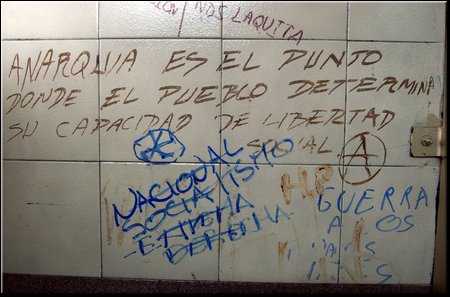 NOS LAQUITA
ANARQUIA ES EL PUNTO
DONDE EL PUEBLO DETERMINA
SU CAPACIDAD DE LIBERTAD
SOCIAL A
NACIONAL
SOCIALISMO
EXTREMA
DERECHA
HP
GUERRA
A OS